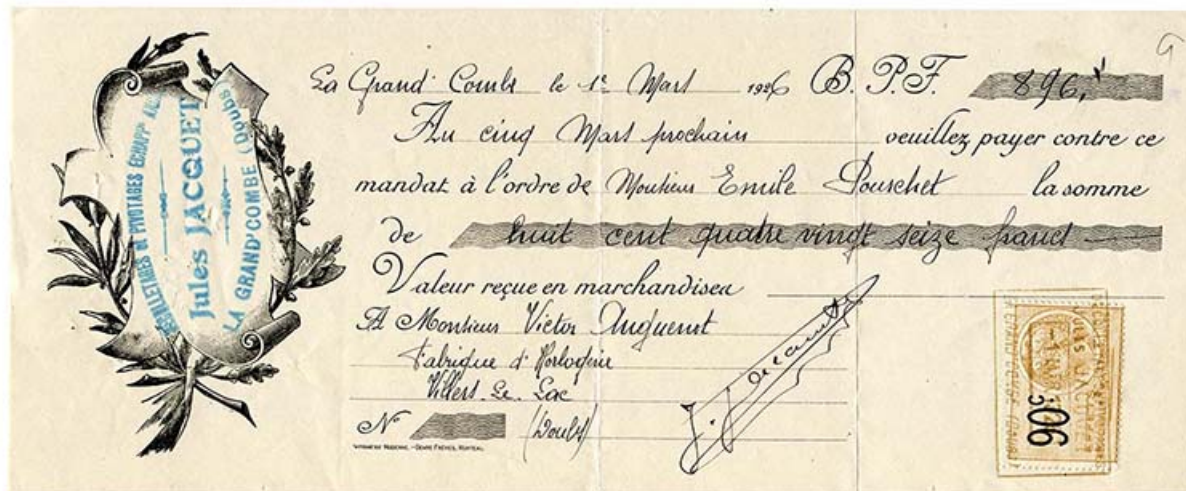 PIVOTAGES ÉCHAPP
Jules JACQUET
LA GRAND'COMBE (Doubs)
La Grand' Combe le 1er Mars 1926 B. P. F. 896,
Au cinq Mars prochain veuillez payer contre ce
mandat à l'ordre de Monsieur Emile Pouschet la somme
de huit cent quatre vingt seize francs
Valeur reçue en marchandises
A Monsieur Victor Anguenot
Fabrique d'Horlogerie
Villers-Le-Lac
No (Doubs)
IMPRIMERIE MODERNE.